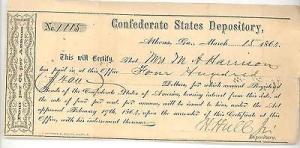 No. 1115
Confederate States Depository,
Athens, Geo. March 15, 1864.
This will Certify, That Mrs M A Harrison
has paid in at this Office Four Hundred
$400 Dollars, for which amount Registered
Bonds of the Confederate States of America, bearing interest from this date, at
the rate of four per cent. per annum, will be issued to him under the Act
approved February 17th, 1864, upon the surrender of this Certificate at this
Office, with his indorsement thereon.
Depositary.